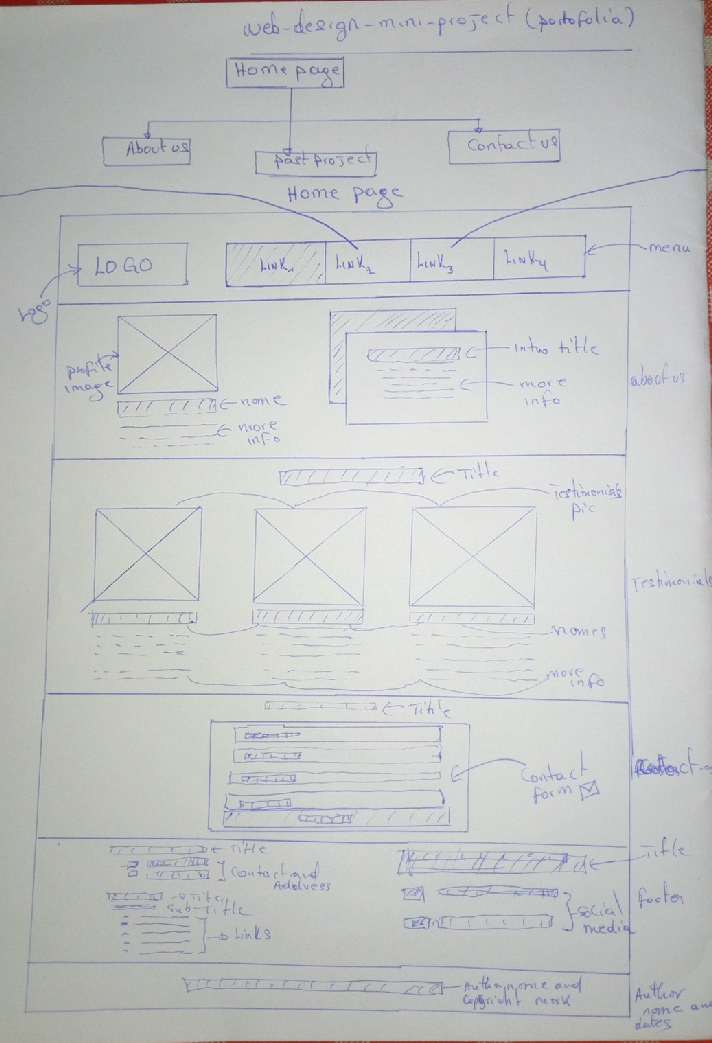 web-design-mini-project (portofolia)
Home page
About us
past project
Contact us
Home page
LOGO
LINK1
LINK2
LINK3
LINK4
menu
Logo
profile
image
name
more
info
Intro title
more
info
about us
Title
Testimonials
pic
Testimonials
names
more
info
Title
Contact
form
Title
Contact and
Title
Sub-Title
Links
Title
social
media
footer
Author name and
Copyright mark
Author
name and
dates